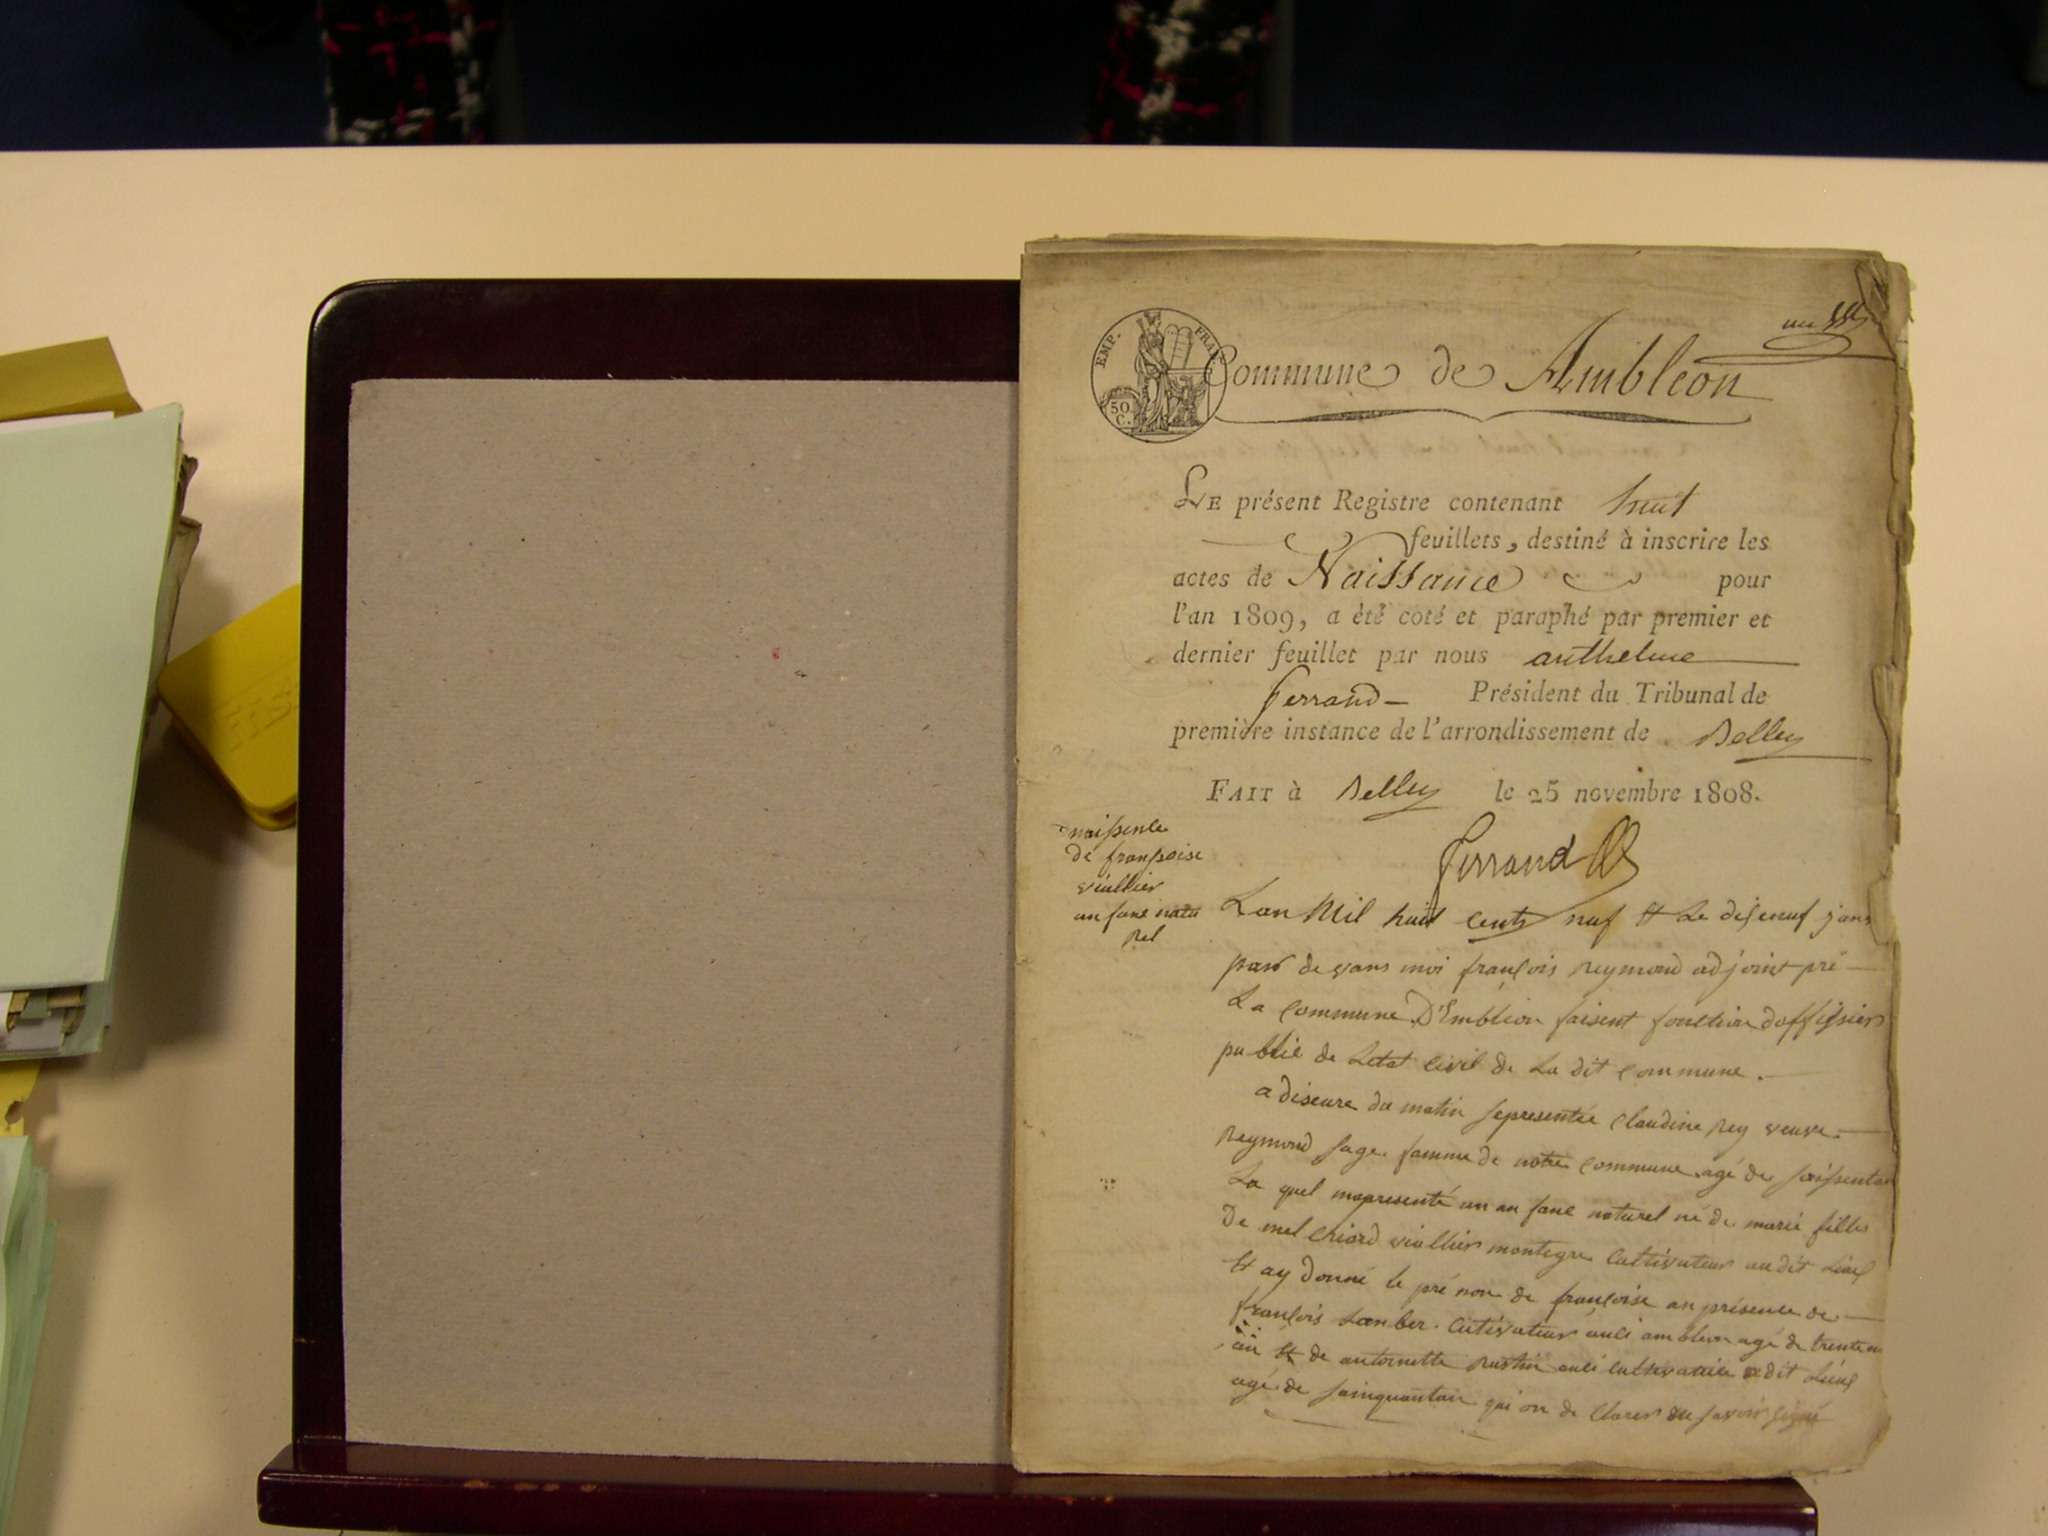 EMP. FRAN.
50
C.
un
Commune de Ambléon
LE présent Registre contenant huit
feuillets, destiné à inscrire les
actes de Naissance pour
l'an 1809, a été coté et paraphé par premier et
dernier feuillet par nous anthelme
Ferrand Président du Tribunal de
première instance de l'arrondissement de Belley
FAIT à Belley le 25 novembre 1808.
Ferrand
naissence
de franssoise
viallier
an fans natu
rel
Lan Mil huit cents nuf et Le disenuf janv
pard de vans moi françois Reymond adjoint pré
La commune D'Embléon faisent fonction doffisier
public de Letat Civil de La dit commune.
a diseure du matin sepresentée Claudine Rey veuve
Reymond sage famme de notre commune agé de soissentan
La quel mapresenté un an fant naturel né de marie fille
De mel chiord viallier montegre Cultivateur audit Lieu
et ay donné le pré nom de françoise an présence de
françois Lamber Cutivateur auci amblion agé de trente
an et de antoinette auci dit Lieu
agé de sainquantan qui on de Clarer ne savoir signé